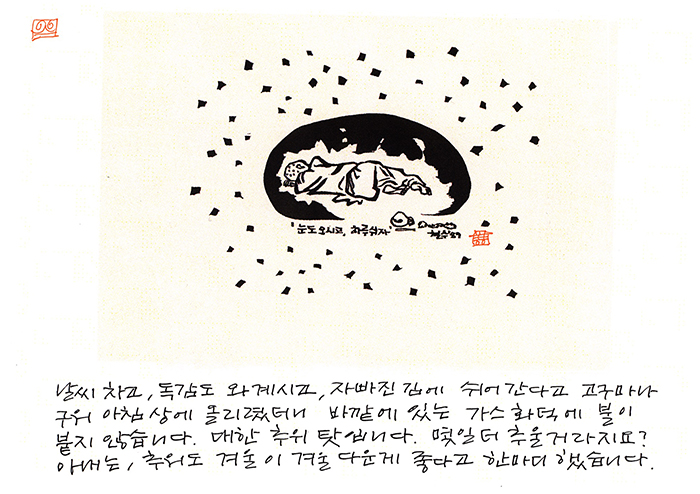 '눈도 오시고, 하루쉬자'
날씨 차고, 독감도 와 계시고, 자빠진 김에 쉬어 간다고 고구마나
구워 아침 상에 올리렸더니 바깥에 있는 가스 화덕에 불이
붙지 않습니다. 대한 추위 탓입니다. 몇일 더 추울거라지요?
아내는, 추위도 겨울이 겨울 다운게 좋다고 한마디 했습니다.